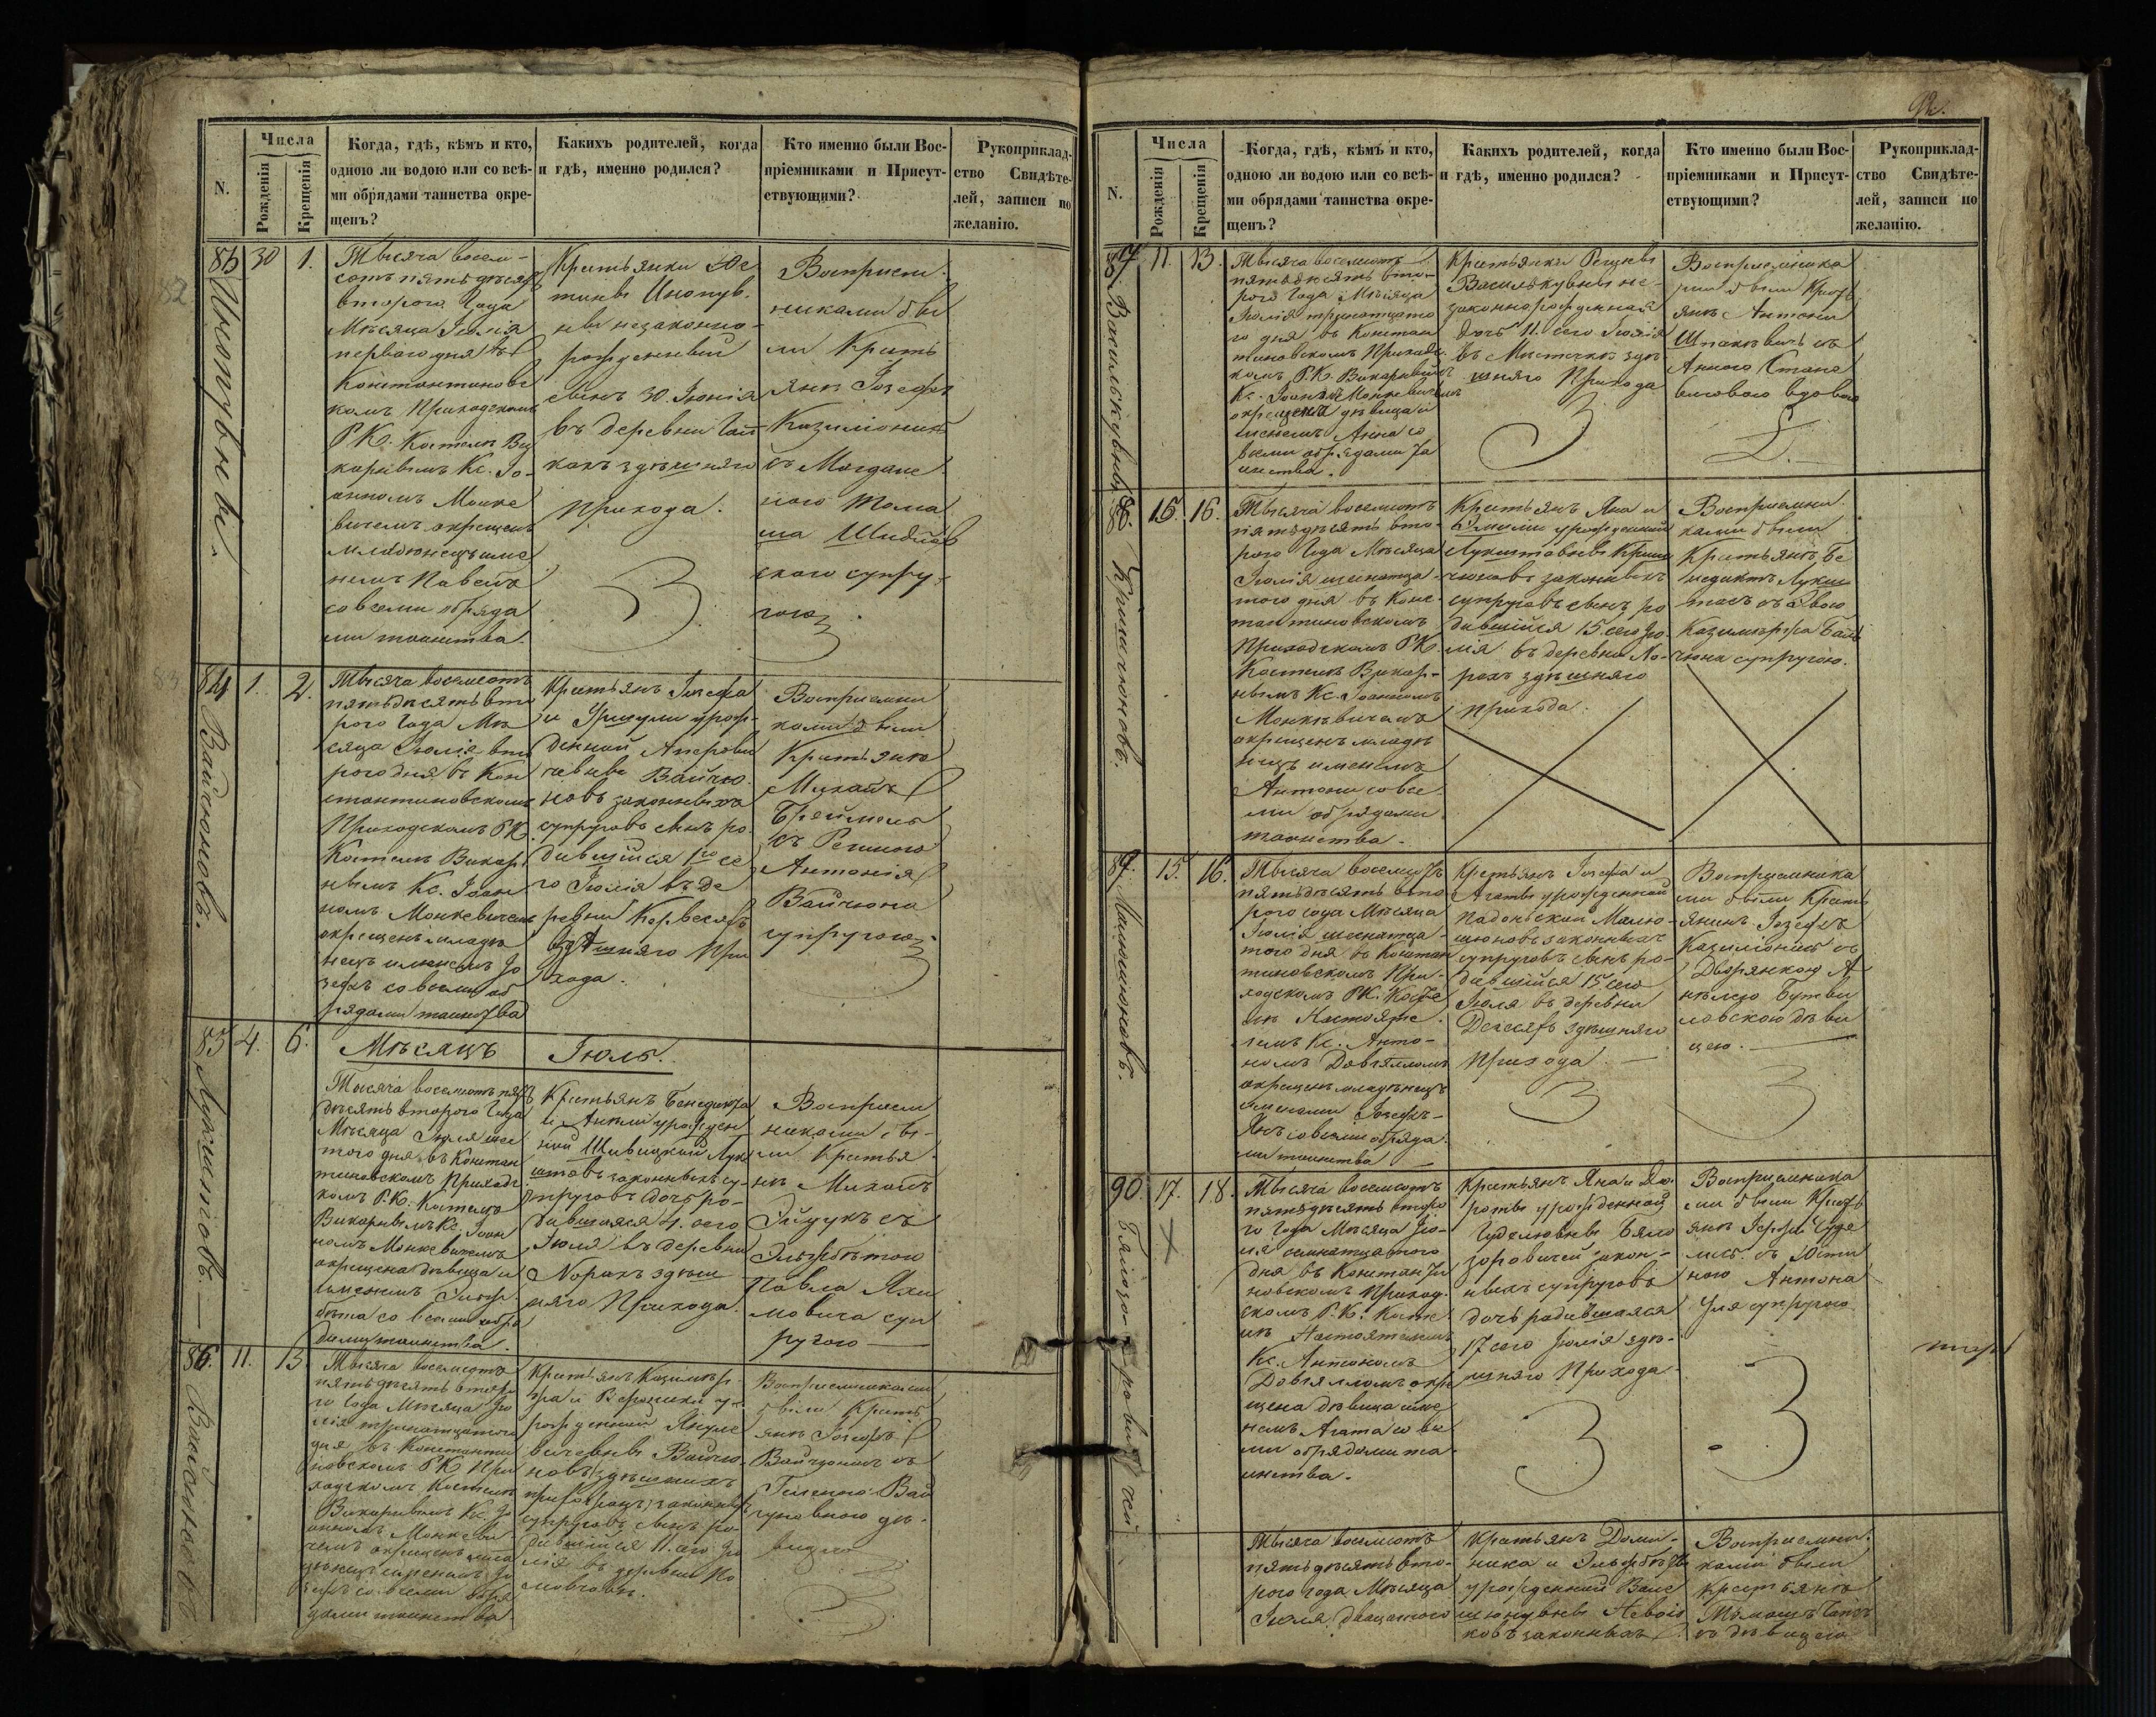 N.
Числа
Рожденія
Крещенія
Когда, гдѣ, кѣмъ и кто,
одною ли водою или со всѣ-
ми обрядами таинства окре-
щенъ?
Каких родителей, когда
и гдѣ, именно родился?
Кто именно были Вос-
пріемниками и Присут-
ствующими?
Рукоприклад-
ство Свидѣте-
лей, записи по
желанію.
30
1.
Тысяча восем-
сотъ пятьдесят
втораго Года
Мѣсяца Іюлія
перваго дня въ
Константиновс
комъ Приходскомъ
Р.К. Костелѣ Ви
карнымъ Кс. Іо-
анномъ Монке
вичемъ окрещенъ
младенецъ име
немъ Павелъ
со всеми обряда
ми таинства.
Крестьянки Юс
тины
незаконно-
рожденный
сынъ 30. Іюнія
въ деревни
кахъ здѣшняго
Прихода.
Восприем-
никами бы
ли Кресть
янъ Іозефъ
Казиміонисъ
съ Магдале
ною Тома
ша
скаго супру-
гою
84
1.
2.
Вайчюновъ.
Тысяча восемсотъ
пятьдесятъ вто
рого Года Мѣ
сяца Іюлія вто
рого дня въ Кон
стантиновскомъ
Приходскомъ Р.К.
Костелѣ Викар
нымъ Кс. Іоан
номъ Монкевичемъ
окрещенъ младе
нецъ именемъ Іо
зефъ со всеми об
рядами таинства
Крестьянъ Іозефа
и Уршули урож-
денной
Вайчю-
новъ законныхъ
супруговъ сынъ ро-
дившійся 1го се
го Іюлія въ де
ревни
здѣшняго При
хода.
Восприемни
ками были
Крестьянъ
Михаилъ
съ Региною
Антонія
Вайчюна
супругою
85
4.
6.
Лукштовъ.
Мѣсяцъ Іюль.
Тысяча восемсотъ пять
десятъ второго Года
Мѣсяца Іюля шес
того дня въ Констан
тиновскомъ Приходс
комъ Р.К. Костелѣ
Викарнымъ Кс. Іоан
номъ Монкевичемъ
окрещена дѣвица и
менемъ Эльж
бѣта со всеми обря
дами таинства.
Крестьянъ Бенедикта
и Анны урожден
ной Шивицкой Лук
штовъ законныхъ су-
пруговъ дочь ро-
дившаяся 4. сего
Іюля въ деревни
Норахъ здѣш
няго Прихода.
Восприем
никами бы-
ли Крестья
нъ Михаилъ
съ
Эльжбѣтою
Павла Яхи
мовича суп
ругою
86.
11.
13.
Тысяча восемсотъ
пятьдесятъ второ
го Года Мѣсяца Ію
лія тринатцатого
дня въ Константи
новскомъ Р.К. При
ходскомъ Костелѣ
Викарнымъ Кс. Іо
анномъ Монкеви
чемъ окрещенъ мла
денецъ именемъ Іо
зефъ со всеми обря
дами таинства
Крестьянъ Казимѣр-
жа и Вероники у-
рожденной
Вайчю-
новъ здѣшнихъ
законныхъ
супруговъ сынъ ро-
дившійся 11. сего Ію
лія въ деревни
Восприемниками
были Кресть
янъ Іозефъ
Вайчюнъ съ
Вай
чуновною дѣ-
вицею
N.
Числа
Рожденія
Крещенія
Когда, гдѣ, кѣмъ и кто,
одною ли водою или со всѣ-
ми обрядами таинства окре-
щенъ?
Каких родителей, когда
и гдѣ, именно родился?
Кто именно были Вос-
пріемниками и Присут-
ствующими?
Рукоприклад-
ство Свидѣте-
лей, записи по
желанію.
87
11.
13.
Василькувны
Тысяча восемсотъ
пятьдесятъ вто-
рого Года Мѣсяца
Іюлія тринатцато
го дня въ Констан
тиновскомъ Приходс
комъ Р.К. Викарнымъ
Кс. Іоанномъ Монкевичемъ
окрещена дѣвица и
менемъ Анна со
всеми обрядами та
инства.
Крестьянки Регины
Василькувны не-
законнорожденная
дочь 11. сего Іюлія
въ Мѣстечкѣ здѣ
шняго Прихода
Восприемника
ми были Кресть
янъ Антони
съ
Анною
вдовою
88
15.
16.
Тысяча восемсотъ
пятьдесятъ вто-
рого Года Мѣсяца
Іюлія шеснатца-
того дня въ Конс-
тантиновскомъ
Приходскомъ Р.К.
Костелѣ Викар-
нымъ Кс. Іоанномъ
Монкевичемъ
окрещенъ младе
нецъ именемъ
Антони со все
ми обрядами
таинства.
Крестьянъ Яна и
Эмилии урожденной
Лукштовны
законныхъ
супруговъ сынъ ро
дившійся 15. сего Ію-
лія въ деревни Но-
рахъ здѣшняго
Прихода.
Восприемни-
ками были
Крестьянъ Бе
недиктъ Лукш
тасъ съ Евою
Казимѣржа
супругою.
89
15.
16.
Малюшюновъ.
Тысяча восемсотъ
пятьдесятъ вто
рого года Мѣсяца
Іюлія шеснатца-
того дня въ Констан
тиновскомъ При-
ходскомъ Р.К. Косте
лѣ Настояте-
лемъ Кс. Анто-
номъ Довгялломъ
окрещенъ младенецъ
именами Іозефъ-
Янъ со всеми обряда-
ми таинства
Крестьянъ Іозефа и
Агаты урожденной
Малю-
шюновъ законныхъ
супруговъ сынъ ро-
дившійся 15. сего
Іюля въ деревни
здѣшняго
Прихода.
Восприемника
ми были Кресть
янинъ Іозефъ
Казиміонисъ съ
Дворянкою А-
нѣлею Бутви
ловскою дѣви
цею.
90.
17.
18.
Бялозо-ровичей
Тысяча восемсотъ
пятьдесятъ второ
го Года Мѣсяца Ію-
лія семнатцатого
дня въ Константи
новскомъ Приход-
скомъ Р.К. Косте-
лѣ Настоятелемъ
Кс. Антономъ
Довгялломъ окре
щена дѣвица име
немъ Агата со все
ми обрядами та
инства.
Крестьянъ Яна и До-
роты урожденной
Бяло
зоровичей закон-
ныхъ супруговъ
дочь родившаяся
17 сего Іюлія здѣ-
шняго Прихода
Восприемника
ми были Кресть
янъ
съ Юсти
ною Антона
супругою
Тысяча восемсотъ
пятьдесятъ вто-
рого года Мѣсяца
Іюля двацатого
Крестьянъ Доми-
ника и Эльжбѣты
урожденной
законныхъ
Восприемни-
ками были
Крестьянъ
съ дѣвицею